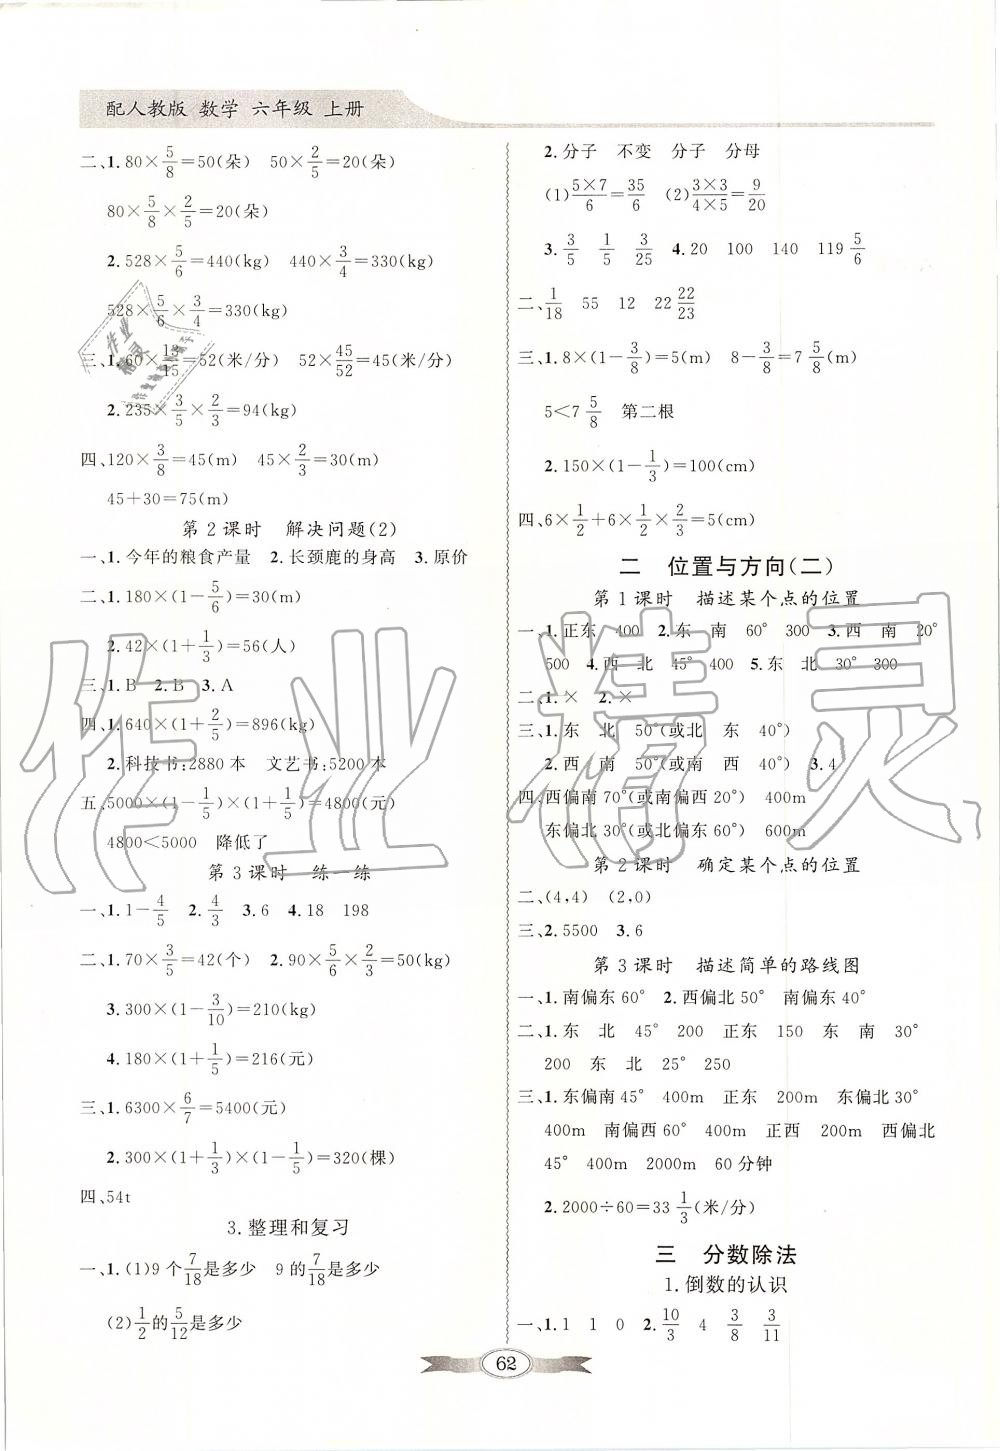 配人教版 数学 六年级 上册
二、1.80×5/8=50(朵) 50×2/5=20(朵)
80×5/8×2/5=20(朵)
2.528×5/6=440(kg) 440×3/4=330(kg)
528×5/6×3/4=330(kg)
三、1.60×13/15=52(米/分) 52×45/52=45(米/分)
2.235×3/5×2/3=94(kg)
四、120×3/8=45(m) 45×2/3=30(m)
45+30=75(m)
第2课时 解决问题(2)
一、1.今年的粮食产量 2.长颈鹿的身高 3.原价
二、1.180×(1-5/6)=30(m)
2.42×(1+1/3)=56(人)
三、1.B 2.B 3.A
四、1.640×(1+2/5)=896(kg)
2.科技书:2880本 文艺书:5200本
五、5000×(1-1/5)×(1+1/5)=4800(元)
4800<5000 降低了
第3课时 练一练
一、1.1-4/5 2.4/3 3.6 4.18 198
二、1.70×3/5=42(个) 2.90×5/6×2/3=50(kg)
3.300×(1-3/10)=210(kg)
4.180×(1+1/5)=216(元)
三、1.6300×6/7=5400(元)
2.300×(1+1/3)×(1-1/5)=320(棵)
四、54t
3.整理和复习
一、1.(1)9个7/18是多少 9的7/18是多少
(2)1/2的5/12是多少
2.分子 不变 分子 分母
(1)5×7/6=35/6 (2)3×3/4×5=9/20
3.3/5 1/5 3/25 4.20 100 140 119 5/6
二、1/18 55 12 22 22/23
三、1.8×(1-3/8)=5(m) 8-3/8=7 5/8(m)
5<7 5/8 第二根
2.150×(1-1/3)=100(cm)
四、6×1/2+6×1/2×2/3=5(cm)
二 位置与方向(二)
第1课时 描述某个点的位置
一、1.正东 400 2.东 南 60° 300 3.西 南 20°
500 4.西 北 45° 400 5.东 北 30° 300
二、1.× 2.×
三、1.东 北 50°(或北 东 40°)
2.西 南 50°(或南 西 40°) 3.4
四、西偏南70°(或南偏西20°) 400m
东偏北30°(或北偏东60°) 600m
第2课时 确定某个点的位置
二、(4,4) (2,0)
三、2.5500 3.6
第3课时 描述简单的路线图
一、1.南偏东60° 2.西偏北50° 南偏东40°
二、1.东 北 45° 200 正东 150 东 南 30°
200 东 北 25° 250
三、1.东偏南45° 400m 正东 200m 东偏北30°
400m 南偏西60° 400m 正西 200m 西偏北
45° 400m 2000m 60分钟
2.2000÷60=33 1/3(米/分)
三 分数除法
1.倒数的认识
一、1.1 1 0 2.10/3 4 3/8 3/11
62
作业精灵